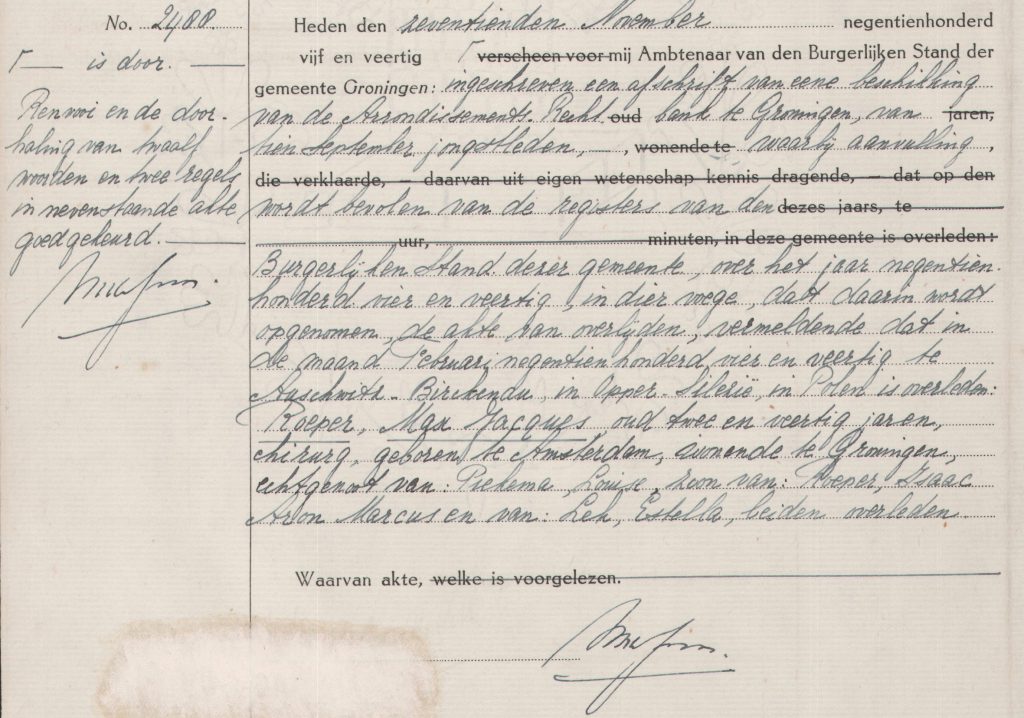 No. 2488.
Γ— is door. —
Renvooi en de door-
haling van twaalf
woorden en twee regels
in nevenstaande akte
goedgekeurd. —
Heden den zeventienden November negentienhonderd
vijf en veertig Γ verscheen voor mij Ambtenaar van den Burgerlijken Stand der
gemeente Groningen: ingeschreven een afschrift van eene beschikking
van de Arrondissements-Recht oud bank te Groningen, van jaren,
tien september jongstleden, —, wonende te waarbij aanvulling,
die verklaarde, — daarvan uit eigen wetenschap kennis dragende, — dat op den
wordt bevolen van de registers van den dezes jaars, te
uur, minuten, in deze gemeente is overleden:
Burgerlijken Stand dezer gemeente, over het jaar negentien-
honderd vier en veertig, in dier voege, dat daarin wordt
opgenomen, de akte van overlijden, vermeldende dat in
de maand Februari negentienhonderd vier en veertig te
Auschwitz-Birckenau, in Opper-Silezië, in Polen is overleden:
Roeper, Max Jacques oud twee en veertig jaren,
chirurg, geboren te Amsterdam, wonende te Groningen,
echtgenoot van: Piekema, Louise, zoon van: Roeper, Isaac
Aron Marcus en van: Leh, Estella, beiden overleden.
Waarvan akte, welke is voorgelezen.